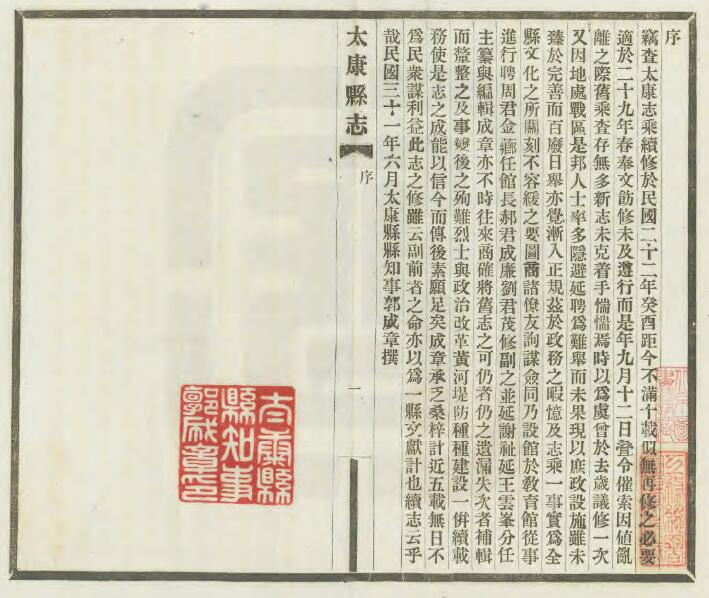 序
竊查太康志乘續修於民國二十二年癸酉距今不滿十載似無再修之必要
適於二十九年春奉文飭修未及遵行而是年九月十二日聲令催索因值亂
離之際舊乘查存無多新志未克着手惴惴焉時以爲虞曾於去歲議修一次
又因地處戰區是邦人士率多隱避延聘爲難舉而未果現以庶政設施雖未
臻於完善而百廢日舉亦覺漸入正規茲於政務之暇憶及志乘一事實爲全
縣文化之所關刻不容緩之要圖商諸僚友詢謀僉同乃設館於敎育館從事
進行聘周君金薌任館長郝君成廉劉君茂修副之並延謝祉延王雲峯分任
主纂與編輯成章亦不時往來商確將舊志之可仍者仍之遺漏失次者補輯
而釐整之及事變後之殉難烈士與政治改革黃河堤防種種建設一併續載
務使是志之成能以信今而傳後素願足矣成章承乏桑梓計近五載無日不
爲民衆謀利益此志之修雖云副前者之命亦以爲一縣文獻計也續志云乎
哉民國三十一年六月太康縣縣知事郭成章撰
太康縣志
序
一
太康縣
縣知事
郭成章印